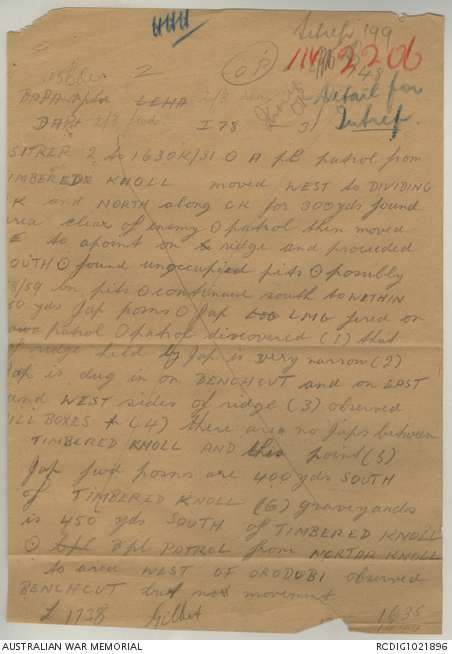 Intref 199
IIV 2206
48
Detail for
Intref.
2
OP
DAPA LEHA 2/3
I 78 31
SITREP 2 to 1630K/31 O A pl patrol from
IMBERED KNOLL moved WEST to DIVIDING
K and NORTH along CK for 300 yds found
area clear of enemy O patrol then moved
E to a point on ridge and proceeded
OUTH O found unoccupied pits O possibly
8/59 bn pits O continued south to WITHIN
50 yds Jap posns O Jap LMG fired on
patrol O patrol discovered (1) that
ridge held by Jap is very narrow (2)
ap is dug in on BENCHCUT and on EAST
and WEST sides of ridge (3) observed
ILL BOXES (4) there area no Japs between
TIMBERED KNOLL AND this point (5)
Jap fwd posns are 400 yds SOUTH
of TIMBERED KNOLL (6) graveyards
is 450 yds SOUTH of TIMBERED KNOLL
O B pl PATROL from MORTAR KNOLL
to area WEST OF ORODUBI observed
BENCHCUT but no movement
1738 Gilbet 1635
AUSTRALIAN WAR MEMORIAL
RCDIG1021896